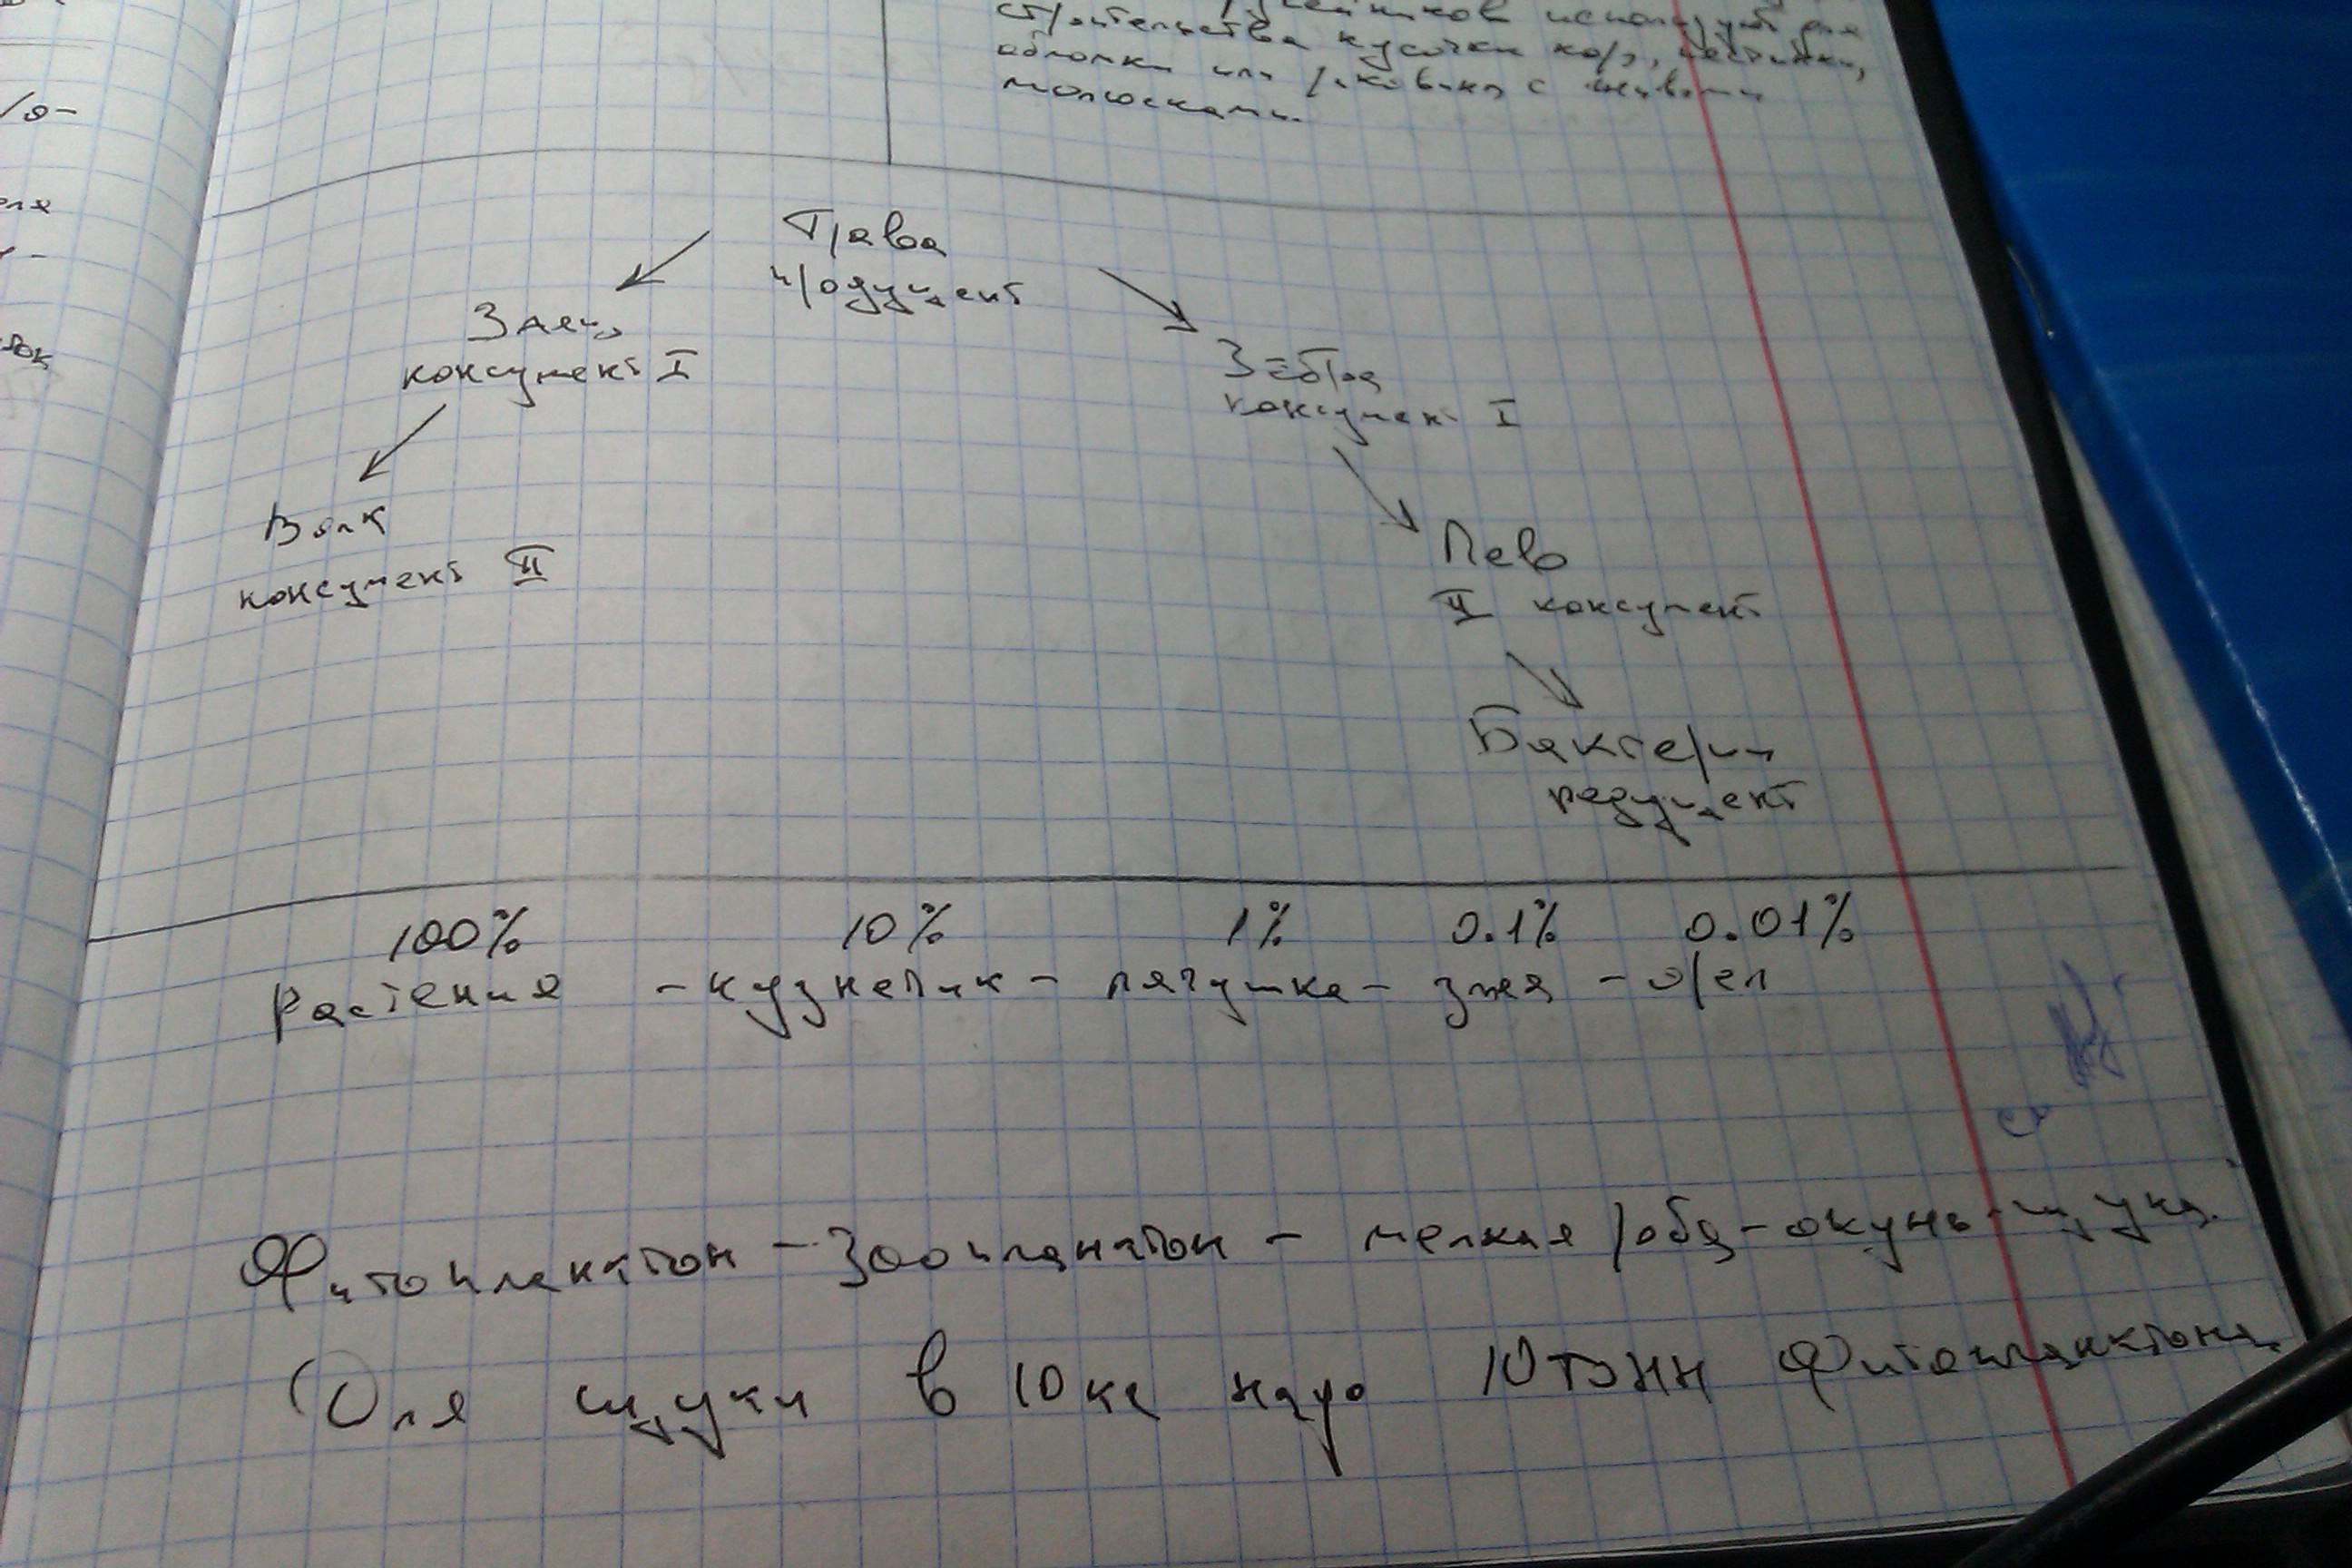 ручейников используют для
строительства кусочки коры, песчинки,
обломки или раковины с живыми
молюсками.
ля
ток
Трава
продуцент
Заец
консумент I
Зебра
консумент I
Волк
консумент II
Лев
II консумент
Бактерии
редуцент
100% 10% 1% 0.1% 0.01%
Растения - кузнечик - лягушка - змея - орел
см
Фитопланктон - Зоопланктон - мелкая рыба - окунь - щука.
Для щуки в 10 кг надо 10 тонн Фитопланктона.